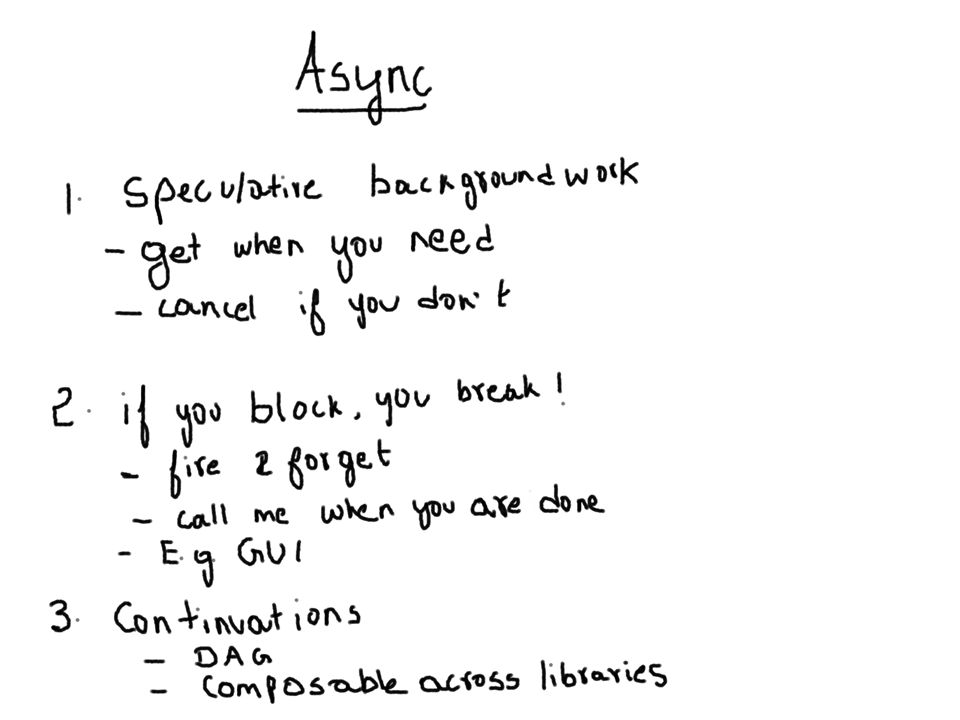 Async
1. Speculative background work
- get when you need
- cancel if you don't
2. if you block, you break!
- fire & forget
- call me when you are done
- E.g GUI
3. Continuations
- DAG
- Composable across libraries